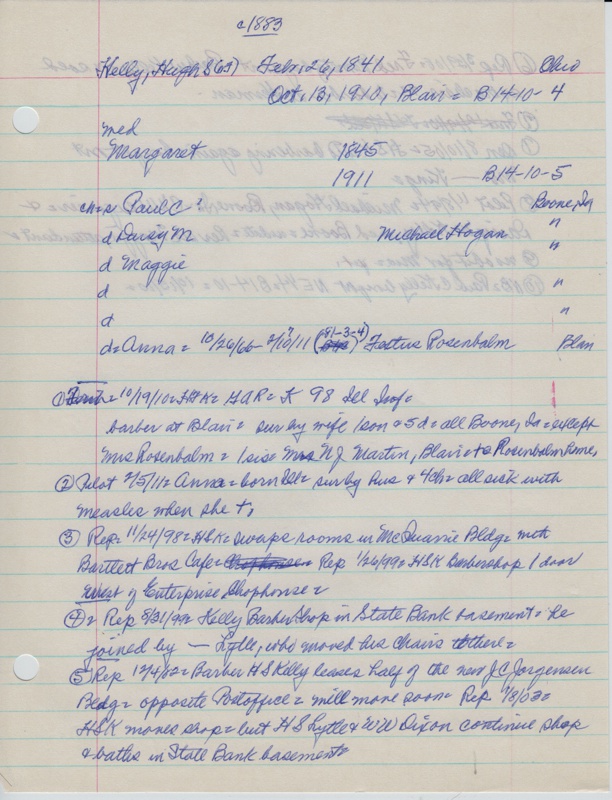 c1883
Kelly, Hugh S (67) Feb. 26, 1841 Ohio
Oct. 13, 1910, Blair = B14-10-4
med
Margaret 1845
1911 B14-10-5
ch = s Paul C Boone, Ia
d Daisy M Michael Hogan "
d Maggie "
d "
d "
d = Anna = 10/26/66 - 2/10/11 (81-3-4) Festus Rosenbalm Blair
① = 10/19/10 = HSK = GAR = K 98 Ill Inf =
barber at Blair = sur by wife 1 son & 5 d = all Boone, Ia = except
Mrs Rosenbalm = 1 sis = Mrs N J Martin, Blair =
② Pilot 2/15/11 = Anna = born Ill = sur by hus & 4 ch = all sick with
measles when she †,
③ Rep = 11/24/98 = HSK = swaps rooms in McQuarrie Bldg = with
Bartlett Bros Cafe = Rep 1/26/99 = HSK Barbershop 1 door
West of Enterprise Chophouse =
④ = Rep 8/31/99 = Kelly Barber Shop in State Bank basement = he
joined by — Lytle, who moved his chairs there =
⑤ Rep 12/4/02 = Barber H S Kelly leases half of the new J C Jorgensen
Bldg = opposite Postoffice = will move soon = Rep 1/8/03 =
HSK moves shop = but H S Lytle & WW Dixon continue shop
& baths in State Bank basement =